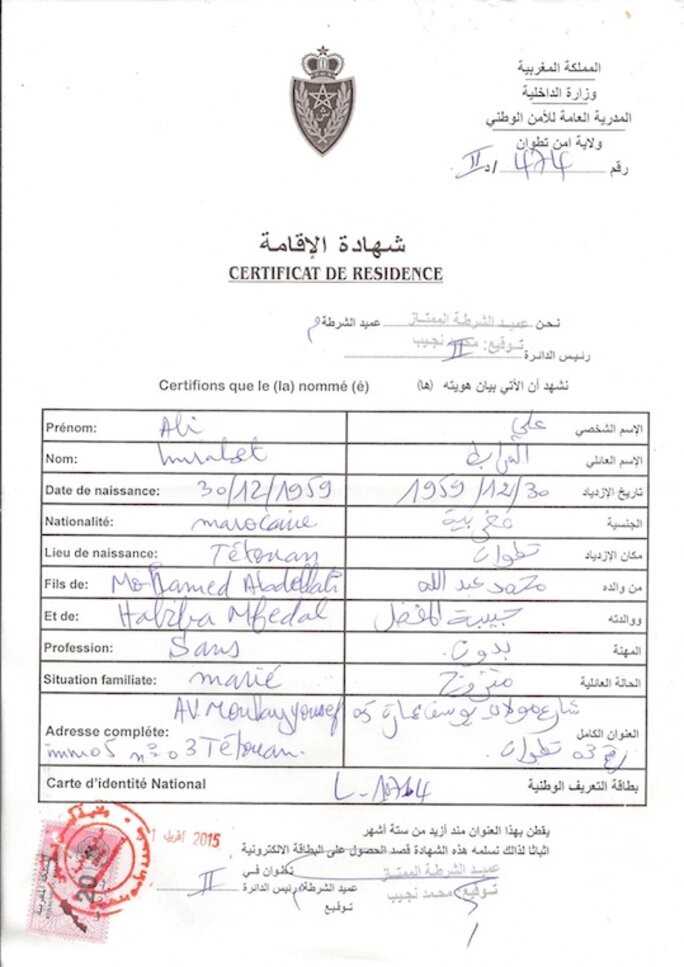 المملكة المغربية
وزارة الداخلية
المديرية العامة للأمن الوطني
ولاية امن تطوان
رقم 474 /د II
شهادة الإقامة
CERTIFICAT DE RESIDENCE
نحن عميد الشرطة الممتاز عميد الشرطة
توقيع: محمد نجيب
رئيس الدائرة II
Certifions que le (la) nommé (é) نشهد أن الأتي بيان هويته (ها)
Prénom: Ali علي الإسم الشخصي
Nom: Mrabet المرابط الإسم العائلي
Date de naissance: 30/12/1959 1959/12/30 تاريخ الإزدياد
Nationalité: marocaine مغربية الجنسية
Lieu de naissance: Tétouan تطوان مكان الإزدياد
Fils de: Mohamed Abdellah محمد عبد الله من والده
Et de: Habiba Mfedal حبيبة المفضل ووالدته
Profession: Sans بدون المهنة
Situation familiate: marié متزوج الحالة العائلية
AV. Moulay youssef شارع مولاي يوسف عمارة 05
Adresse compléte: العنوان الكامل
immo5 n° 03 Tétouan. رقم 03 تطوان.
Carte d'identité National L-1714 بطاقة التعريف الوطنية
يقطن بهذا العنوان مند أزيد من ستة أشهر
اثباتا لذلك نسلمه هذه الشهادة قصد الحصول على البطاقة الالكترونية
أفريل 2015
عميد الشرطة الممتاز تطوان في
توقيع: محمد نجيب عميد الشرطة رئيس الدائرة II
توقيع
المملكة المغربية
20